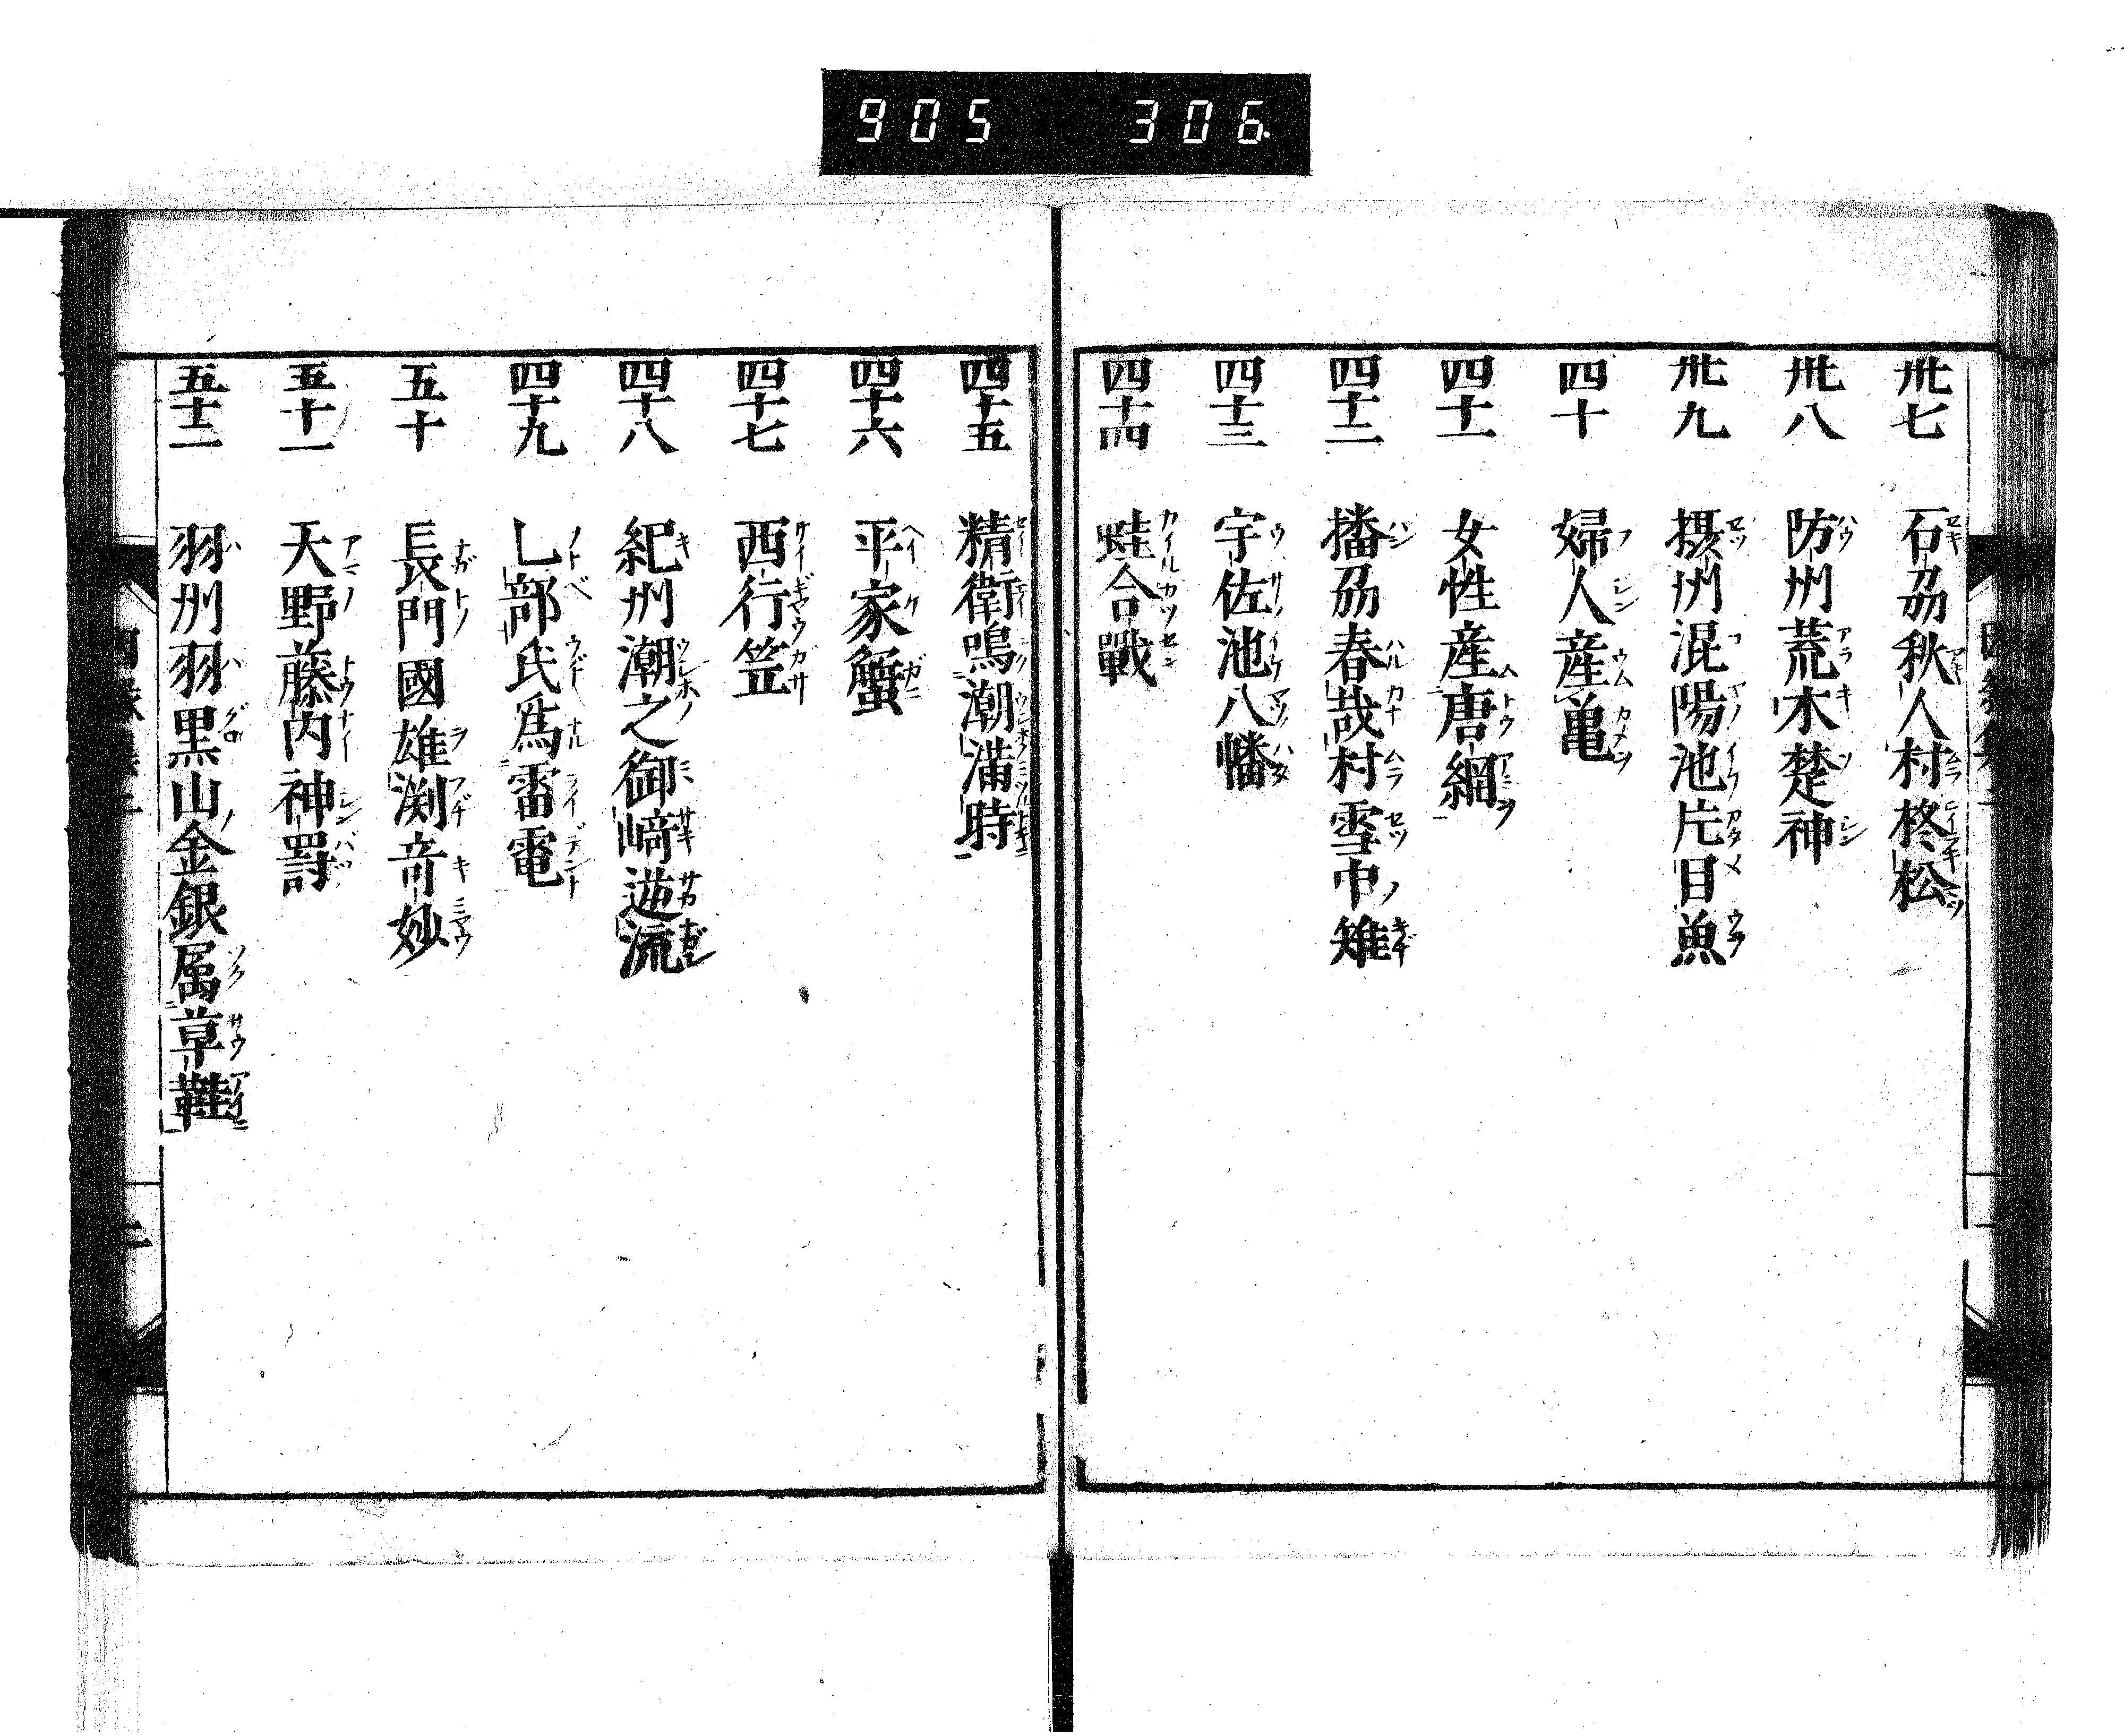 905 306
卅七 石州秋人村柊松
卅八 防州荒木楚神
卅九 摂州混陽池片目魚
四十 婦人産亀
四十一 女性産唐網
四十二 播州春哉村雪中雉
四十三 宇佐池八幡
四十四 蛙合戰
四十五 精衛鳴潮満時
四十六 平家蟹
四十七 西行笠
四十八 紀州潮之御﨑逆流
四十九 乚部氏爲雷電
五十 長門國雄渕竒妙
五十一 天野藤内神罸
五十二 羽州羽黒山金銀属草鞋